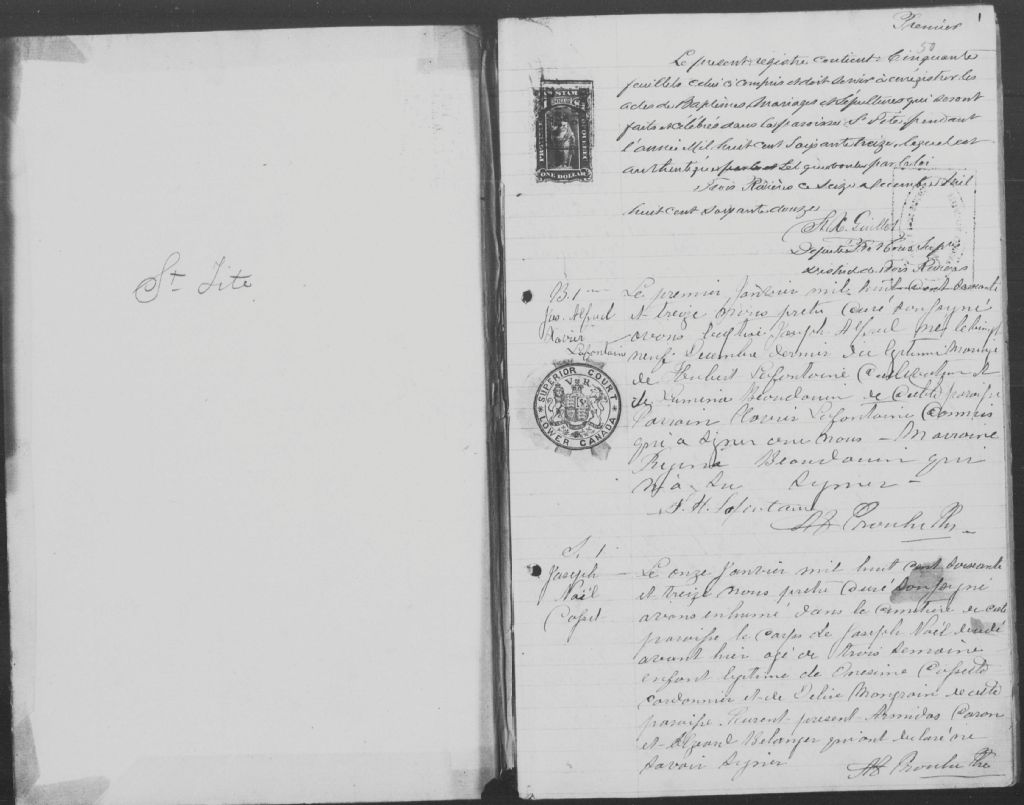 St Tite
Premier
1
50
Le present registre contient Cinquante
feuillets celui ci compris et doit servir à enrégistrer les
actes de Baptêmes, Mariages et Sépultures qui seront
faits et célébrés dans la paroisse St Tite pendant
l'année Mil huit cent Soixante treize, lequel est
par la loi
Trois Rivières ce Seize decembre Mil
huit cent soixante douze
Guillet
Député
district de Trois Rivières
ONE DOLLAR
B. 1
Jos. Alfred
Xavier
Lafontaine
SUPERIOR COURT
V R
LOWER CANADA
Le premier Janvier mil huit cent soixante
et treize nous prêtre Curé soussigné
avons baptisé Joseph Alfred né le vingt
neuf Decembre dernier du legitime Mariage
de Hubert Lafontaine Cultivateur et
de Beaudouin de cette paroisse
Parrain Xavier Lafontaine Commis
qui a signer avec nous - Marraine
Regina Beaudouin qui
n'a su signer -
Lafontaine
Proulx Ptre
S. 1
Joseph
Noël
Le onze Janvier mil huit cent soixante
et treize nous prêtre Curé soussigné
avons enhumé dans le cimetière de cette
paroisse le Corps de Joseph Noël decédé
avant hier agé de trois semaine
enfant legitime de Onesime
Cordonnier et de Mongrain de cette
paroisse. Furent present Armidas Caron
et Belanger qui ont declaré ne
savoir signer
Proulx Ptre